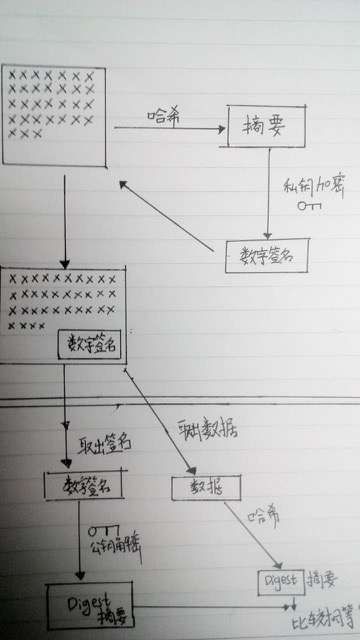 ×××××××
×××××××
×××××××
×××××××
×××
哈希
摘要
私钥加密
数字签名
×××××××××
×××××××××
×××××××××
××××
数字签名
取出签名
取出数据
数字签名
数据
哈希
公钥解密
Digest
摘要
Digest 摘要
比较相等